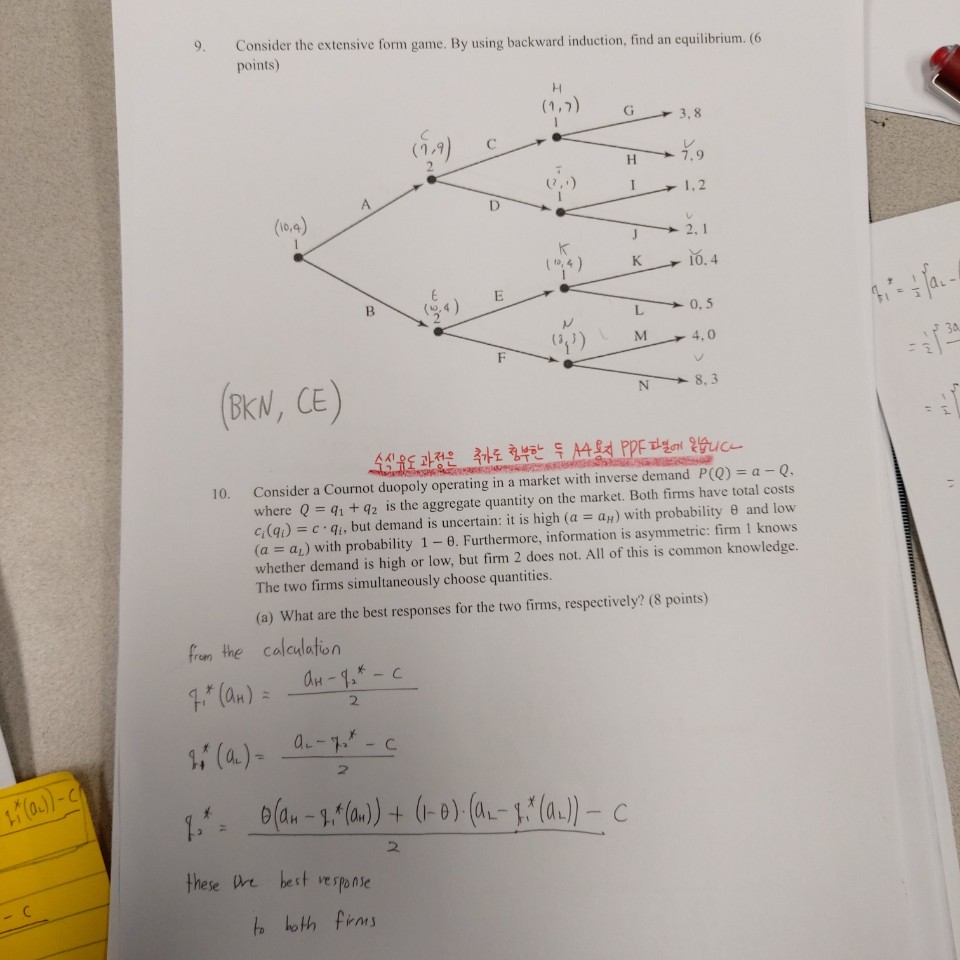 9. Consider the extensive form game. By using backward induction, find an equilibrium. (6
points)
H
(7,9)
1
G
3, 8
H
7, 9
C
(7,9)
2
C
D
(2,1)
1
I
1, 2
J
2, 1
A
(10,4)
1
B
K
(10,4)
1
K
10, 4
L
0, 5
E
(10,4)
2
E
F
N
(8,3)
1
M
4, 0
N
8, 3
(BKN, CE)
수식유도 과정은 추가로 첨부한 두 A4용지 PPF파일에 있습니다
10. Consider a Cournot duopoly operating in a market with inverse demand P(Q) = a − Q,
where Q = q₁ + q₂ is the aggregate quantity on the market. Both firms have total costs
cᵢ(qᵢ) = c · qᵢ, but demand is uncertain: it is high (a = a_H) with probability θ and low
(a = a_L) with probability 1 − θ. Furthermore, information is asymmetric: firm 1 knows
whether demand is high or low, but firm 2 does not. All of this is common knowledge.
The two firms simultaneously choose quantities.
(a) What are the best responses for the two firms, respectively? (8 points)
from the calculation
q₁*(a_H) = (a_H − q₂* − c) / 2
q₁*(a_L) = (a_L − q₂* − c) / 2
q₂* = (θ(a_H − q₁*(a_H)) + (1−θ)·(a_L − q₁*(a_L)) − c) / 2
these are best response
to both firms
q₁*(a_L)) − c
− c
q₁* = ½{a_L −
= ½{3a
= ½{
=